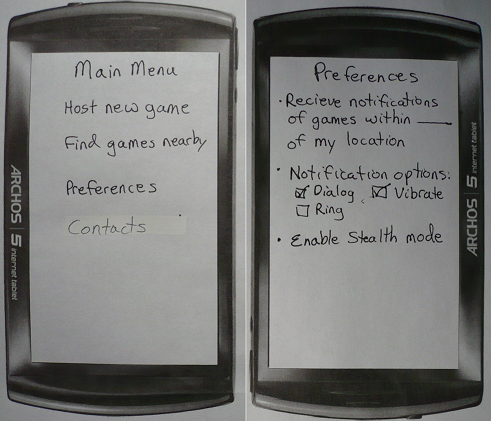 Main Menu
Host new game
Find games nearby
Preferences
Contacts
ARCHOS 5 internet tablet
Preferences
• Recieve notifications
of games within ____
of my location
• Notification options:
☑ Dialog ☑ Vibrate
☐ Ring
• Enable Stealth mode
ARCHOS 5 internet tablet